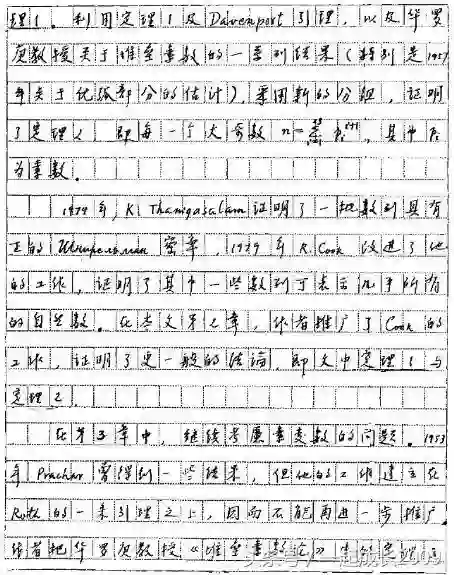 理1. 利用定理1及Davenport引理, 以及华罗
庚教授关于堆垒素数的一系列结果(特别是1957
年关于优弧部分的估计), 采用新的分组, 证明
了定理2, 即每一个大奇数 n=
为素数.
1979年, K. Thanigasalam证明了一批数列具有
正的Шнирельман密率, 1979年R. Cook改进了他
的工作, 证明了其中一些数列可表示几乎所有
的自然数. 在本文第2章, 作者推广了Cook的
工作, 证明了更一般的结论, 即文中定理1与
定理2.
在第3章中, 继续考虑素变数的问题. 1953
年Prachar曾得到一些结果, 但他的工作建立在
Roth的一条引理之上, 因而不能再进一步推广.
作者把华罗庚教授《堆垒素数论》